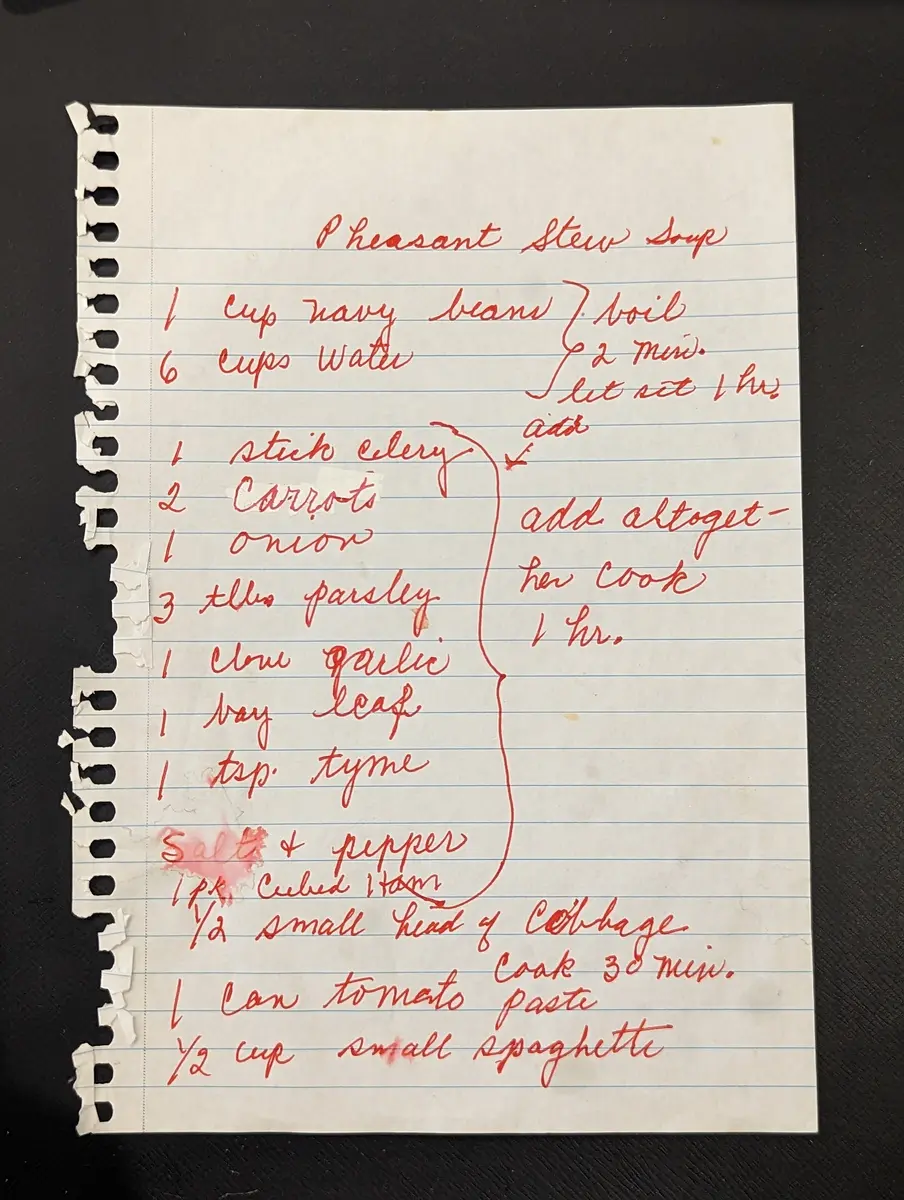 Pheasant Stew Soup
1 cup navy beans } boil
6 cups Water 2 Min.
let set 1 hr.
add
1 stick celery
2 Carrots
1 onion
3 tlbs parsley
1 clove garlic
1 bay leaf
1 tsp. tyme
add altoget-
her cook
1 hr.
Salt & pepper
1 pk. Cubed Ham
1/2 small head of Cabbage
Cook 30 Min.
1 Can tomato paste
1/2 cup small spaghetti